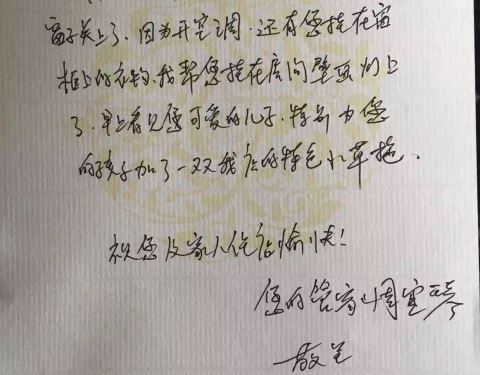 窗子关上了，因为开空调，还有您挂在窗
框上的衣物，我帮您挂在房间壁画灯上
了，早上看见您可爱的儿子，特别为您
的孩子加了一双我店的特色小草拖。
祝您及家人住店愉快！
您的管家：周宜琴
敬呈